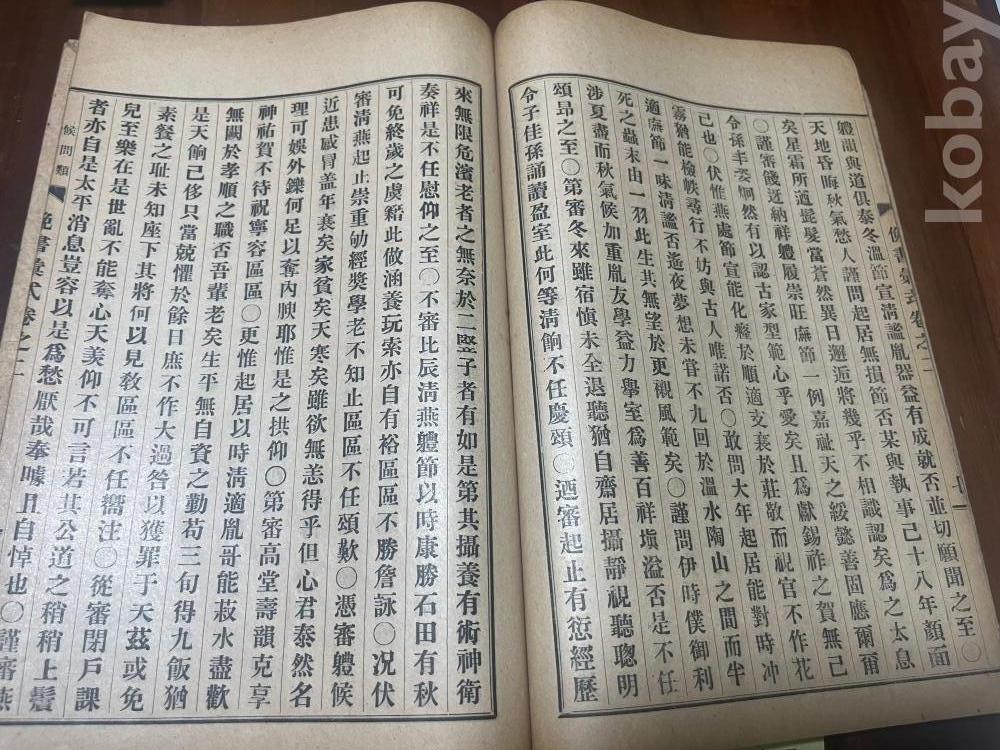 俛書彙式卷之二 十一
軆韻與道俱泰冬溫節宣淸謐胤器益有成就否並切願聞之至〇
天地昏晦秋氣愁人謹問起居無損節否某與執事己十八年顏面
矣星霜所遒髭髮當蒼然異日邂逅將幾乎不相識認矣爲之太息
〇謹審餞迓納祥軆履崇旺廡節一例嘉祉天之綏懿善固應爾爾
令孫丰姿炯然有以認古家型範心乎愛矣且爲獻錫祚之賀無己
己也〇伏惟燕處節宣能化癃於順適攴衰於莊敬而視官不作花
霧猶能檢帙尋行不妨與古人唯諾否〇敢問大年起居能對時冲
適廡節一味淸謐否遙夜夢想未甞不九回於溫水陶山之間而半
死之蟲末由一羽此生共無望於更覯風範矣〇謹問伊時僕御利
涉夏盡而秋氣候加重胤友學益力舉室爲善百祥塡溢否是不任
頌昻之至〇第審冬來雖宿愼未全退聽猶自齋居攝靜視聽聰明
令子佳孫誦讀盈室此何等淸餉不任慶頌〇迺審起止有愆經歷
來無限危濱老者之無奈於二竪子者有如是第其攝養有術神衛
奏祥是不任慰仰之至〇不審比辰淸燕軆節以時康勝石田有秋
可免終歲之虞藉此做涵養玩索亦自有裕區區不勝詹詠〇況伏
審淸燕起止崇重劬經奬學老不知止區區不任頌歎〇憑審軆候
近患感冒盖年衰矣家貧矣天寒矣雖欲無恙得乎但心君泰然名
理可娛外鑠何足以奪內腴耶惟是之拱仰〇第審高堂壽韻克享
神祐賀不待祝寧容區區〇更惟起居以時淸適胤哥能菽水盡歡
無闕於孝順之職否吾輩老矣生平無自資之勤苟三旬得九飯猶
是天餉己侈只當兢懼於餘日庶不作大過咎以獲罪于天茲或免
素餐之耻未知座下其將何以見敎區區不任嚮注〇從審閉戶課
兒至樂在是世亂不能奪心天羡仰不可言若其公道之稍稍上鬢
者亦自是太平消息豈容以是爲愁厭哉奉噱且自悼也〇謹審燕
候問類
俛書彙式卷之二
kobay